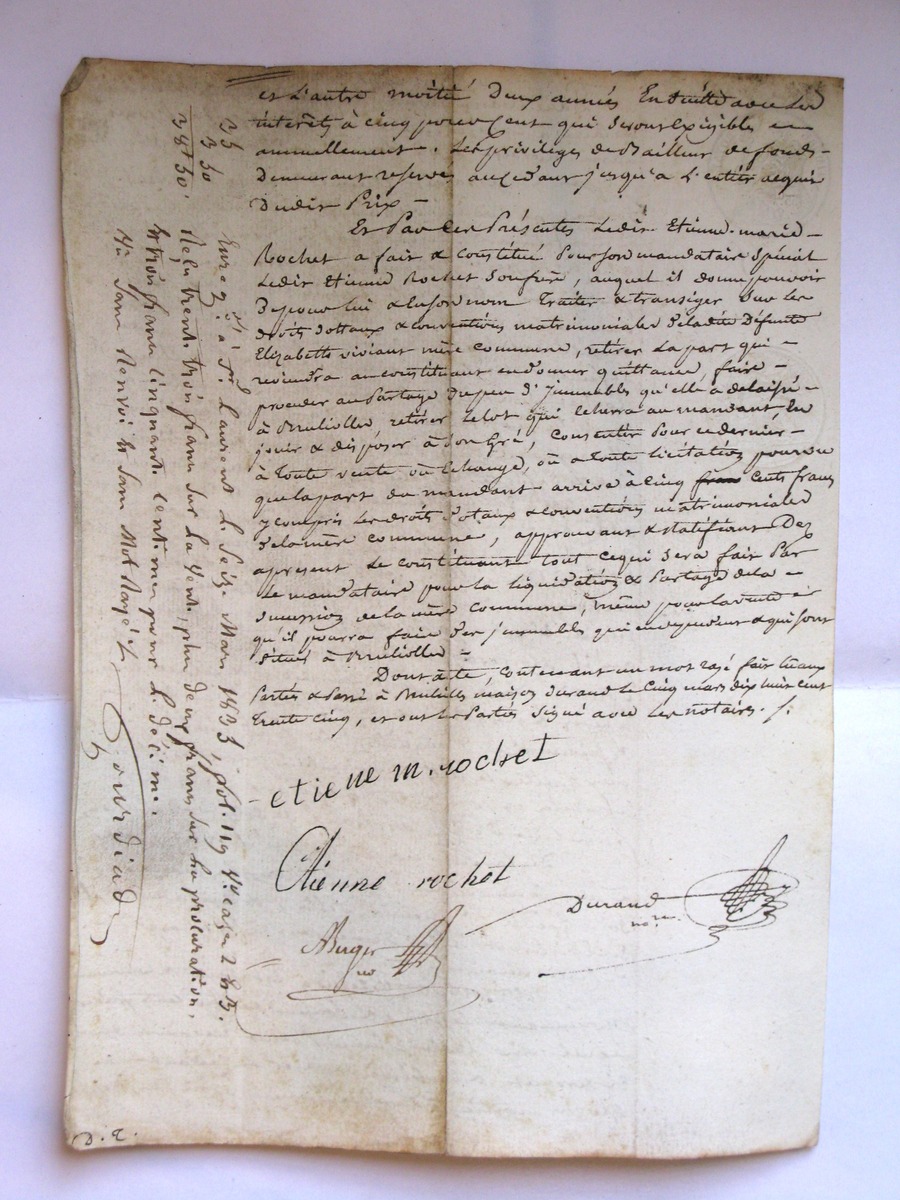 et l'autre moitié deux années Ensuitte avec les
intérêts à cinq pour cent qui serout Exigibles
annuellement. Les privileges de Bailleur de fonds
Demeurant reservés au cedant jusqu'a l'entier acquit
Dudit Prix —
Et Par les Présentes Ledit Etienne-marie
Rochet a fait & constitué Pour son mandataire Spécial
Ledit Etienne Rochet son frère, auquel il donne pouvoir
De pour lui & En son nom Traiter & transiger sur les
droits dottaux & conventions matrimoniales de ladite Défunte
Elizabeth viviant mère commune, retirer la part qui
reviendra au constituant en donner quittance, faire
proceder au Partage du peu d'jmmeubles qu'elle a delaissé
à Brulliolles, retirer le lot qui Echerra au mandant, En
jouir & disposer à son Gré, consentir Pour ce dernier
à Toute vente ou Echange, où à toute licitation pourvu
que la part du mandant arrive à cinq cents francs
y compris les droits dotaux & conventions matrimoniales
de la mère commune, approuvant & ratifiant Dez
apresent Le constituant tout ce qui sera fait Par
Le mandataire pour la liquidation & Partage de la
succession de la mère commune, même pour la vente
qu'il pourra faire des jmmeubles qui en dependent & qui sont
situés à Brulliolles
Dont acte, contenant un mot rayé fait Eaux
Parties & Passé à maison durand le Cinq mars dix huit cent
trente cinq, et ont les Parties signé avec les notaires.
etiene m. rochet
Etienne rochet
Durand
nore.
no
33
3 30
Enreg.é à St. Laurent le Seize Mars 183 fol. 119 Vo. case 2 &5.
Reçu trente trois francs sur la Vente, plus deux francs sur la procuration,
Et trois francs cinquante centimes pour le décime.
Un Sans Renvoi & Sans Mot Rayé
D. E.